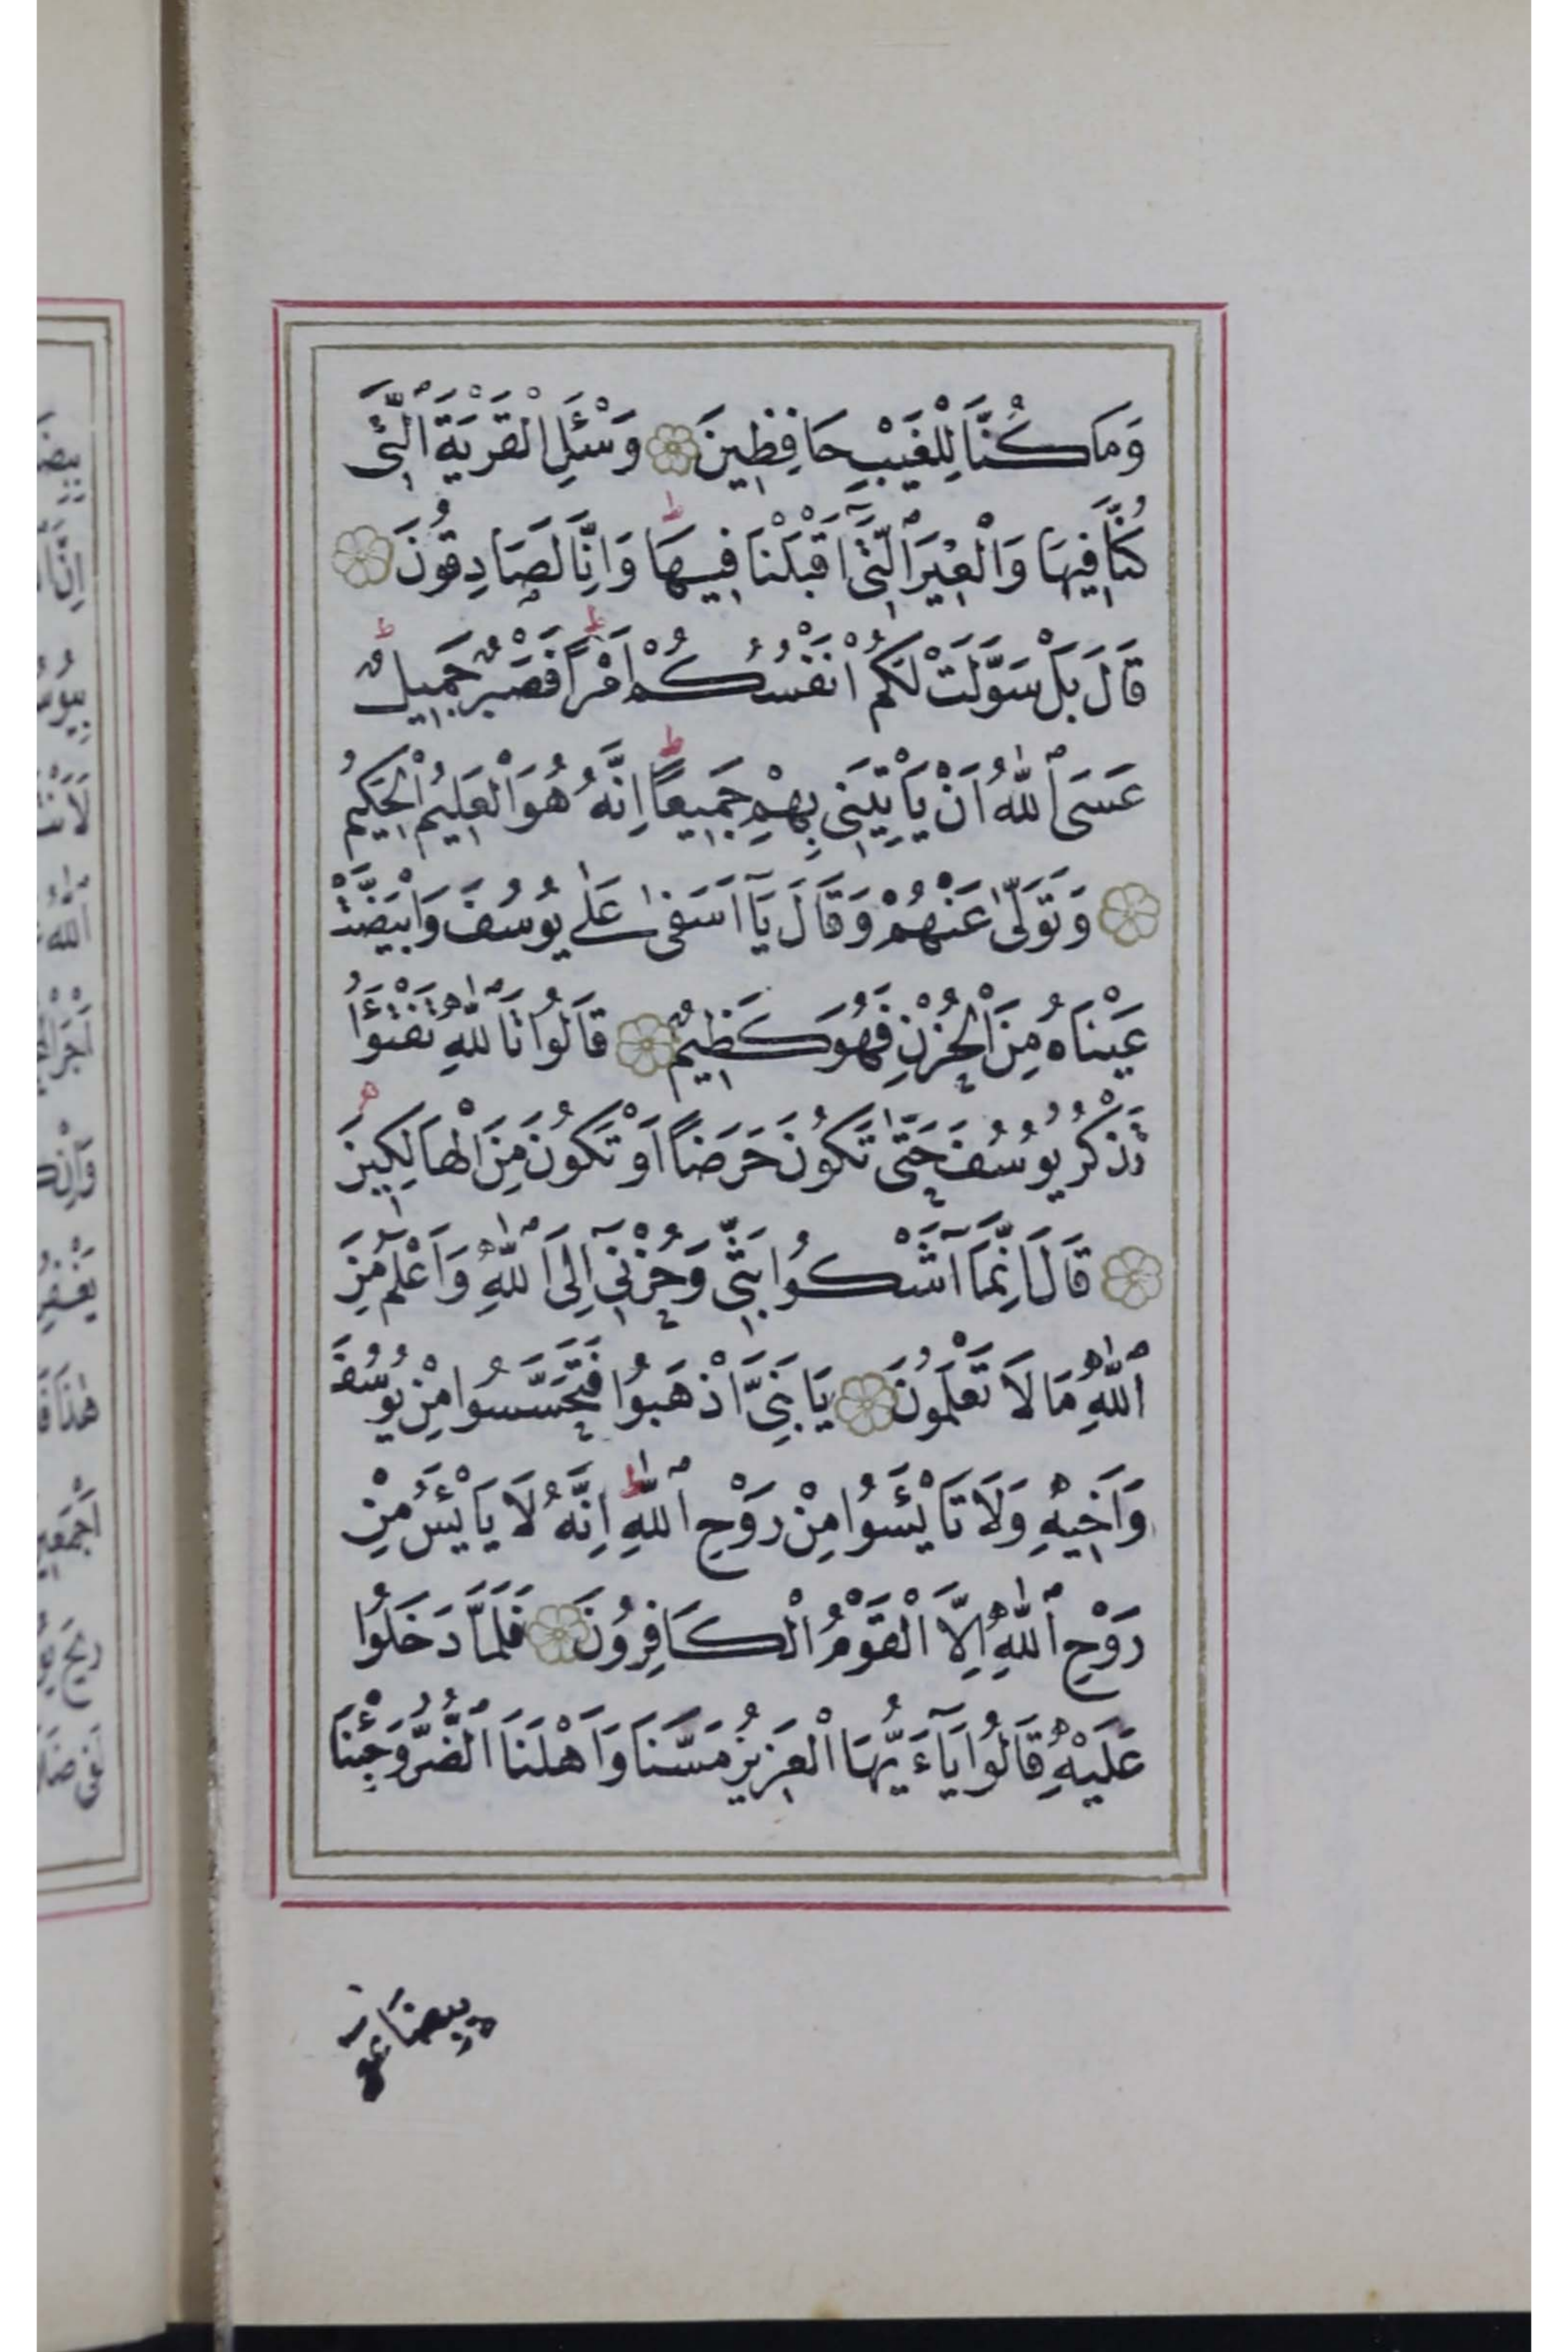 وَمَا كُنَّا لِلْغَيْبِ حَافِظِينَ وَسْئَلِ الْقَرْيَةَ ٱلَّتِى
كُنَّا فِيهَا وَالْعِيرَ ٱلَّتِىٓ اَقْبَلْنَا فِيهَا ط وَاِنَّا لَصَادِقُونَ
قَالَ بَلْ سَوَّلَتْ لَكُمْ اَنْفُسُكُمْ اَمْرًا ط فَصَبْرٌ جَمِيلٌ ط
عَسَى ٱللّٰهُ اَنْ يَأْتِيَنِى بِهِمْ جَمِيعًا ط اِنَّهُ هُوَ الْعَلِيمُ الْحَكِيمُ
وَتَوَلّٰى عَنْهُمْ وَقَالَ يَآ اَسَفٰى عَلٰى يُوسُفَ وَابْيَضَّتْ
عَيْنَاهُ مِنَ الْحُزْنِ فَهُوَ كَظِيمٌ قَالُوا تَاللّٰهِ تَفْتَؤُا
تَذْكُرُ يُوسُفَ حَتّٰى تَكُونَ حَرَضًا اَوْ تَكُونَ مِنَ الْهَالِكِينَ
قَالَ اِنَّمَآ اَشْكُوا بَثِّى وَحُزْنِىٓ اِلَى ٱللّٰهِ وَاَعْلَمُ مِنَ
ٱللّٰهِ مَا لَا تَعْلَمُونَ يَا بَنِىَّ اذْهَبُوا فَتَحَسَّسُوا مِنْ يُوسُفَ
وَاَخِيهِ وَلَا تَايْئَسُوا مِنْ رَوْحِ ٱللّٰهِ ط اِنَّهُ لَا يَايْئَسُ مِنْ
رَوْحِ ٱللّٰهِ اِلَّا الْقَوْمُ الْكَافِرُونَ فَلَمَّا دَخَلُوا
عَلَيْهِ قَالُوا يَآءَيُّهَا الْعَزِيزُ مَسَّنَا وَاَهْلَنَا ٱلضُّرُّ وَجِئْنَا
بِبِضَاعَةٍ